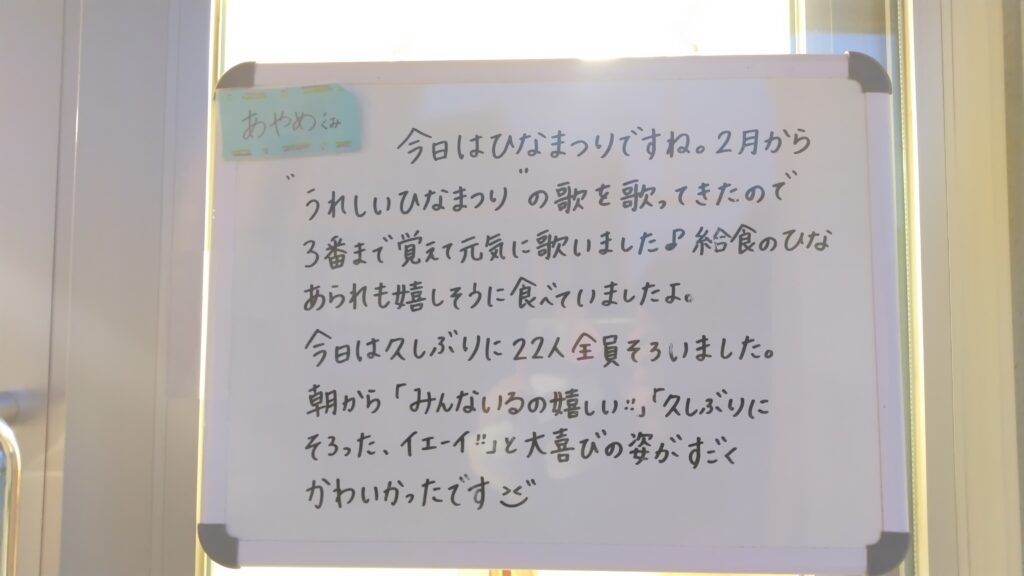 あやめくみ
今日はひなまつりですね。2月から
"うれしいひなまつり"の歌を歌ってきたので
3番まで覚えて元気に歌いました♪給食のひな
あられも嬉しそうに食べていましたよ。
今日は久しぶりに22人全員そろいました。
朝から「みんないるの嬉しい!!」「久しぶりに
そろった、イエーイ!!」と大喜びの姿がすごく
かわいかったです